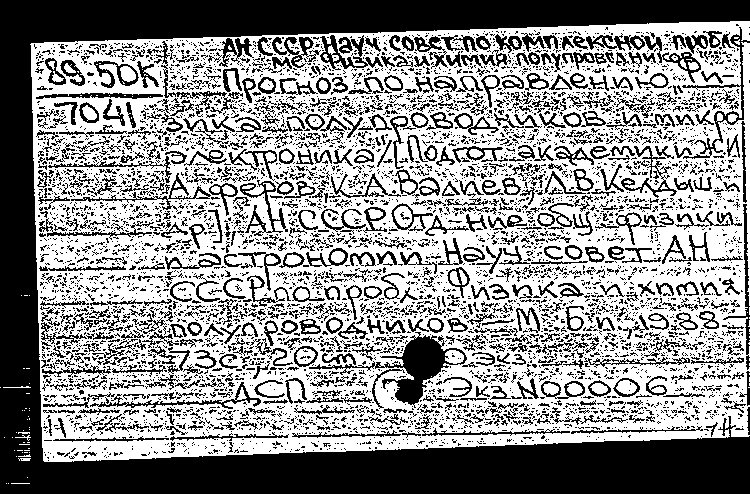 АН СССР. Науч. совет по комплексной пробле-
ме „Физика и химия полупроводников"
89-5ДК
7041
Прогноз по направлению „Фи-
зика полупроводников и микро-
электроника"/[Подгот. академики Ж.И.
Алферов, К.А.Валиев, Л.В.Келдыш и
др.]; АН СССР. Отд-ние общ. физики
и астрономии, Науч. совет АН
СССР по пробл. „Физика и химия
полупроводников". — М. : Б.и., 1988. —
73с.; 20см. —
ДСП Экз. N00006